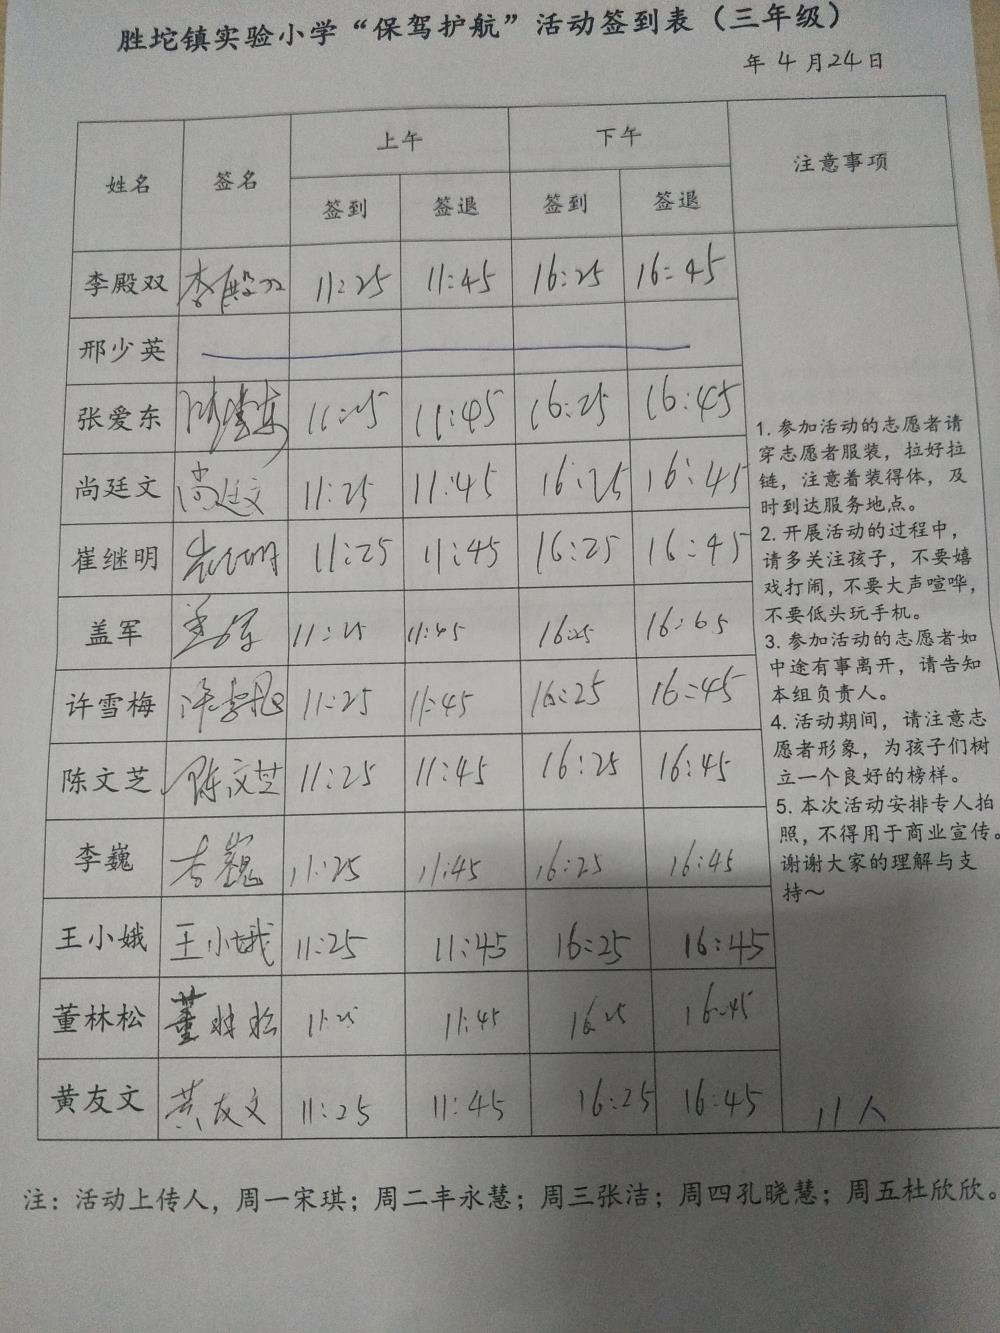 胜坨镇实验小学“保驾护航”活动签到表（三年级）
年 4 月 24 日
姓名 签名 上午 下午 注意事项
签到 签退 签到 签退
李殿双 李殿双 11:25 11:45 16:25 16:45
邢少英
张爱东 11:25 11:45 16:25 16:45
尚廷文 尚廷文 11:25 11:45 16:25 16:45
崔继明 崔继明 11:25 11:45 16:25 16:45
盖军 盖军 11:25 11:45 16:25 16:45
许雪梅 许雪梅 11:25 11:45 16:25 16:45
陈文芝 陈文芝 11:25 11:45 16:25 16:45
李巍 李巍 11:25 11:45 16:25 16:45
王小娥 王小娥 11:25 11:45 16:25 16:45
董林松 董林松 11:25 11:45 16:25 16:45
黄友文 黄友文 11:25 11:45 16:25 16:45
1. 参加活动的志愿者请
穿志愿者服装，拉好拉
链，注意着装得体，及
时到达服务地点。
2. 开展活动的过程中，
请多关注孩子，不要嬉
戏打闹，不要大声喧哗，
不要低头玩手机。
3. 参加活动的志愿者如
中途有事离开，请告知
本组负责人。
4. 活动期间，请注意志
愿者形象，为孩子们树
立一个良好的榜样。
5. 本次活动安排专人拍
照，不得用于商业宣传。
谢谢大家的理解与支
持～
11人
注：活动上传人，周一宋琪；周二丰永慧；周三张洁；周四孔晓慧；周五杜欣欣。